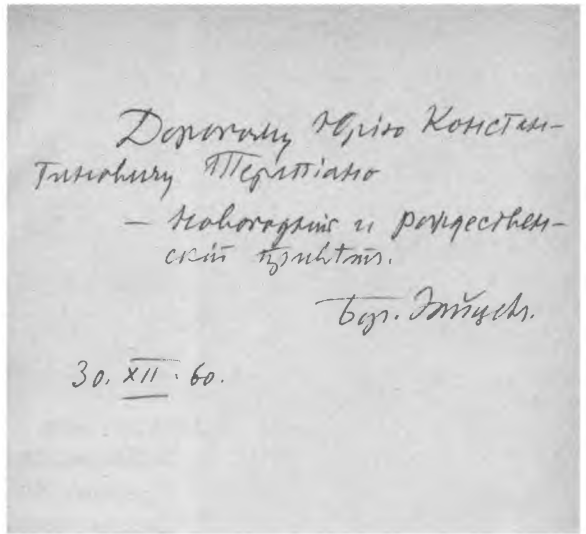 Дорогому Юрiю Констан-
тиновичу Терапiано
— новогоднiй и рождествен-
скiй привѣтъ.
Бор. Зайцевъ.
30. XII. 60.